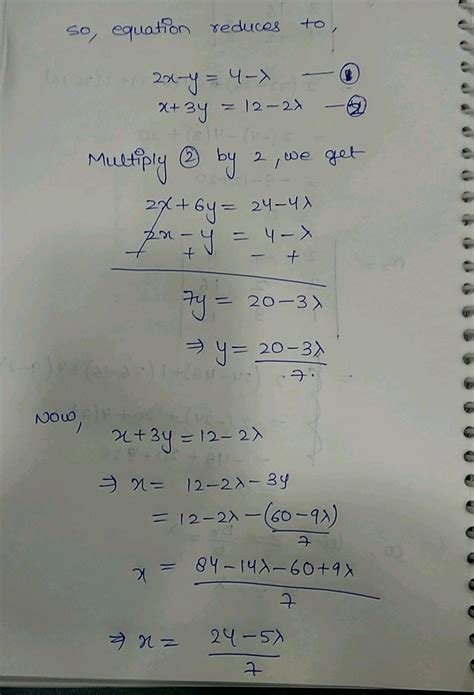 so, equation reduces to,
2x-y = 4-λ — ①
x+3y = 12-2λ — ②
Multiply ② by 2, we get
2x+6y = 24-4λ
2x-y = 4-λ
- + - +
7y = 20-3λ
⇒ y = 20-3λ
7
Now,
x+3y = 12-2λ
⇒ x = 12-2λ-3y
= 12-2λ-(60-9λ)
7
x = 84-14λ-60+9λ
7
⇒ x = 24-5λ
7